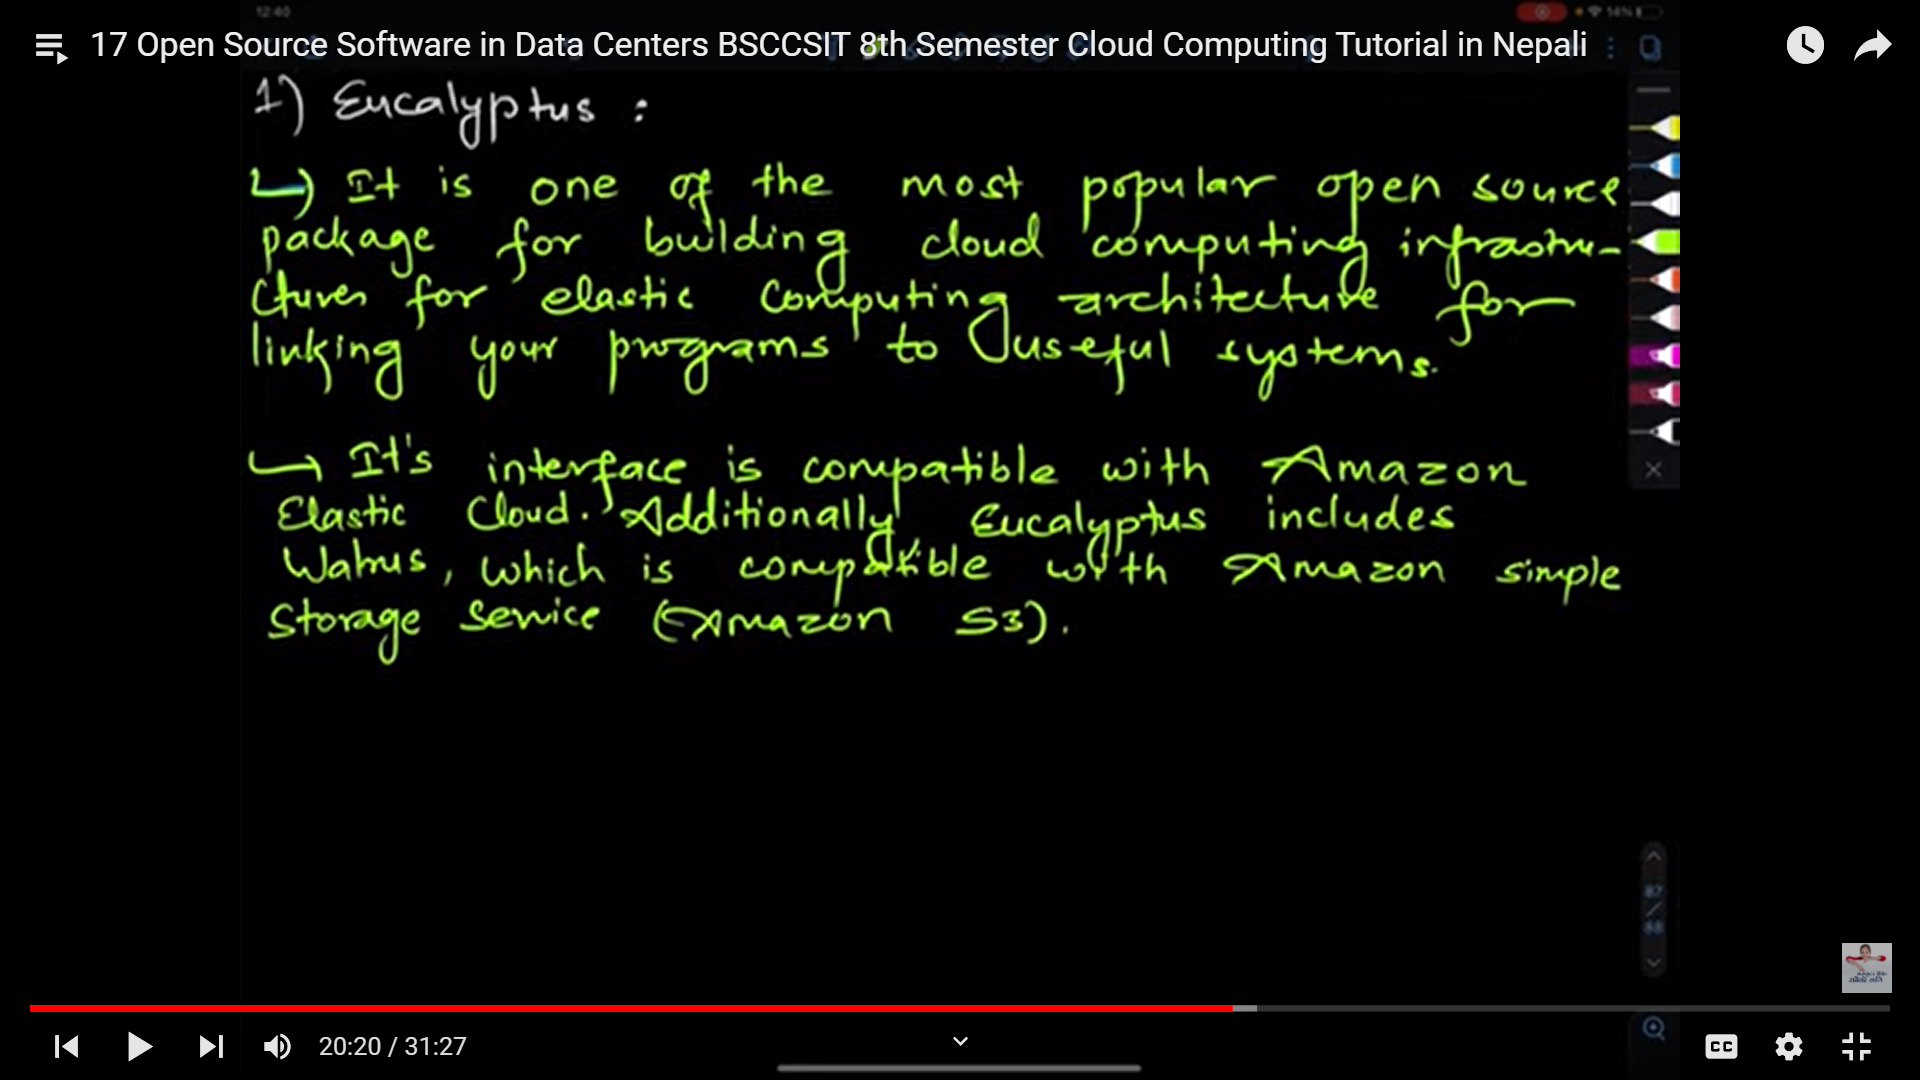 12:40
14%
17 Open Source Software in Data Centers BSCCSIT 8th Semester Cloud Computing Tutorial in Nepali
1) Eucalyptus :
↳ It is one of the most popular open source
package for building cloud computing infrastru-
ctures for elastic computing architecture for
linking your programs to useful systems.
↳ It's interface is compatible with Amazon
Elastic Cloud. Additionally Eucalyptus includes
Walrus, which is compatible with Amazon simple
Storage Service (Amazon S3).
87
/
88
20:20 / 31:27
CC